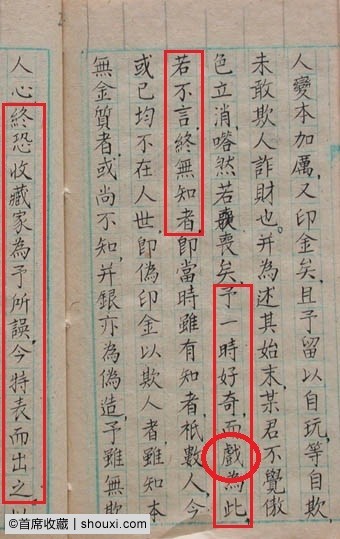 人變本加厲，又印金矣，且予留以自玩，等自欺，
未敢欺人詐財也。并為述其始末，某君不覺傲
色立消，嗒然若喪矣，予一時好奇，而戲為此，
若不言，終無知者，即當時雖有知者，祇數人，今
或已均不在人世，即偽印金以欺人者，雖知本
無金質者，或尚不知，并銀亦為偽造，予雖無欺
人心，終恐收藏家為予所誤，今特表而出之，以
©首席收藏 | shouxi.com